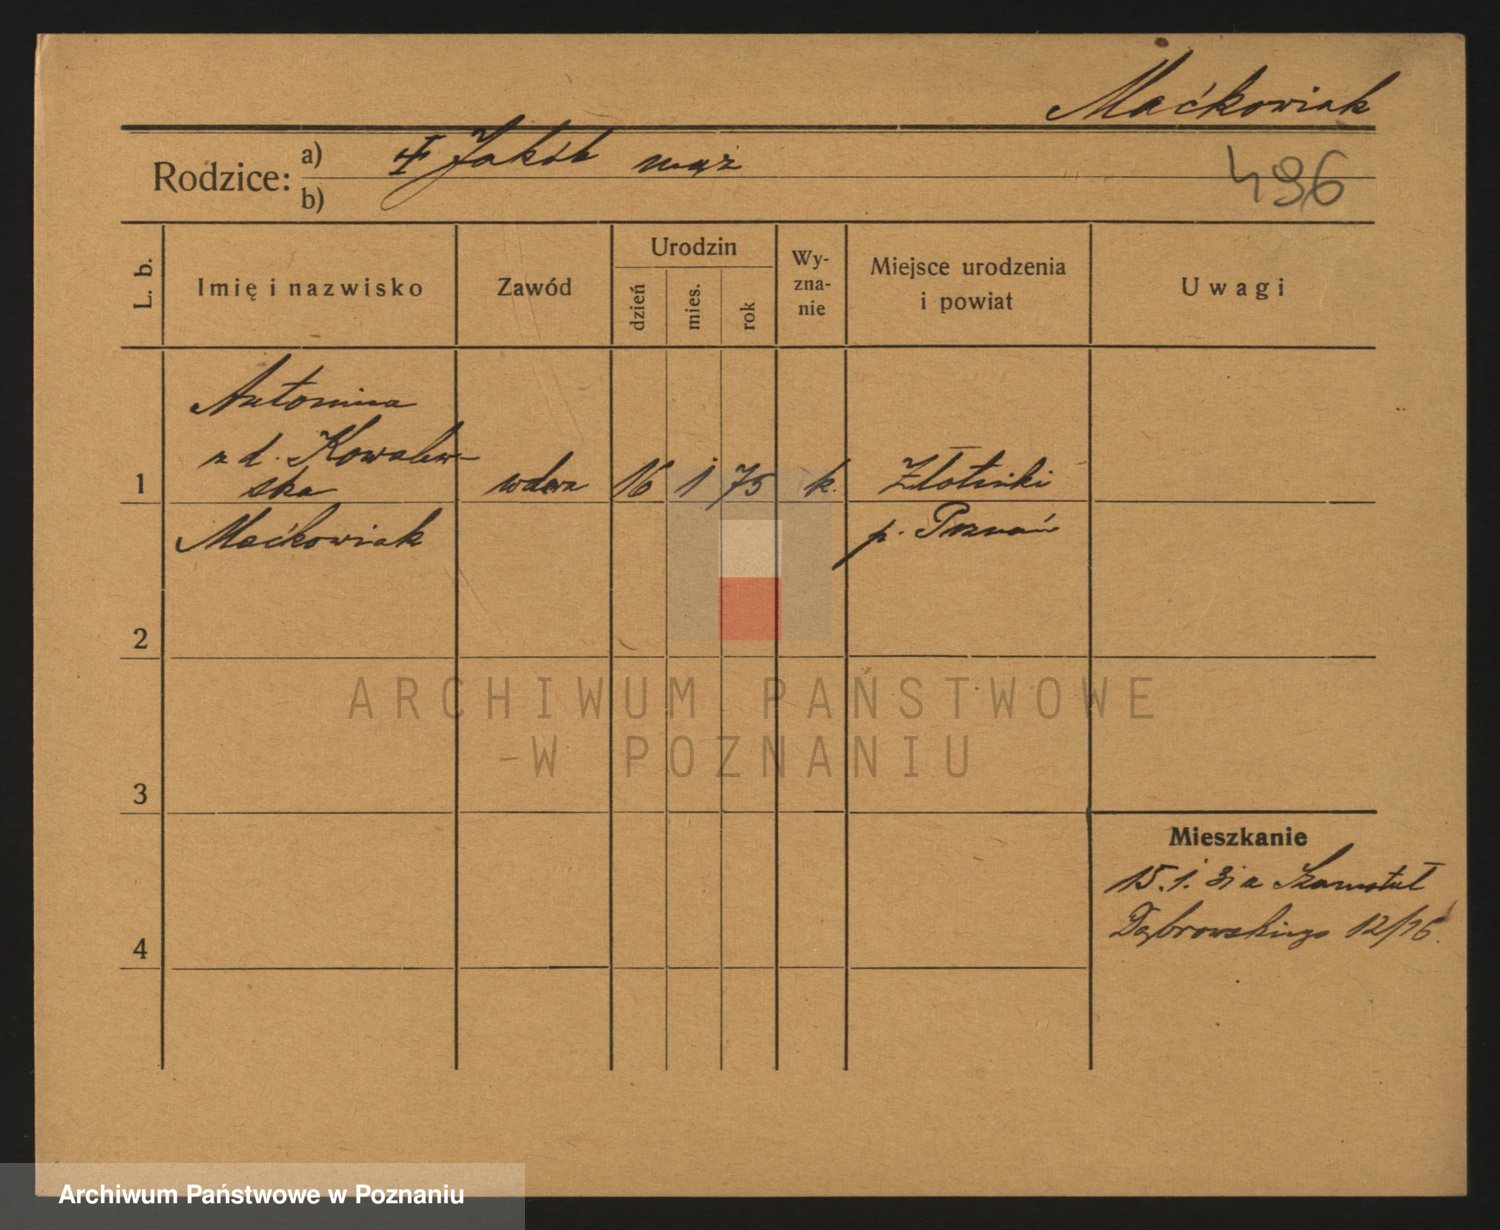 Maćkowiak
Rodzice:
a) ‡ Jakób mąż
b)
496
L. b.
Imię i nazwisko
Zawód
Urodzin
dzień
mies.
rok
Wy-
zna-
nie
Miejsce urodzenia
i powiat
Uwagi
Antonina
z d. Kowalew-
ska
1
wdowa
16
1
75
k.
Złotniki
Maćkowiak
p. Poznań
2
ARCHIWUM PAŃSTWOWE
W POZNANIU
3
Mieszkanie
15.1. 31 z Szamotuł
Dąbrowskiego 12/16.
4
Archiwum Państwowe w Poznaniu